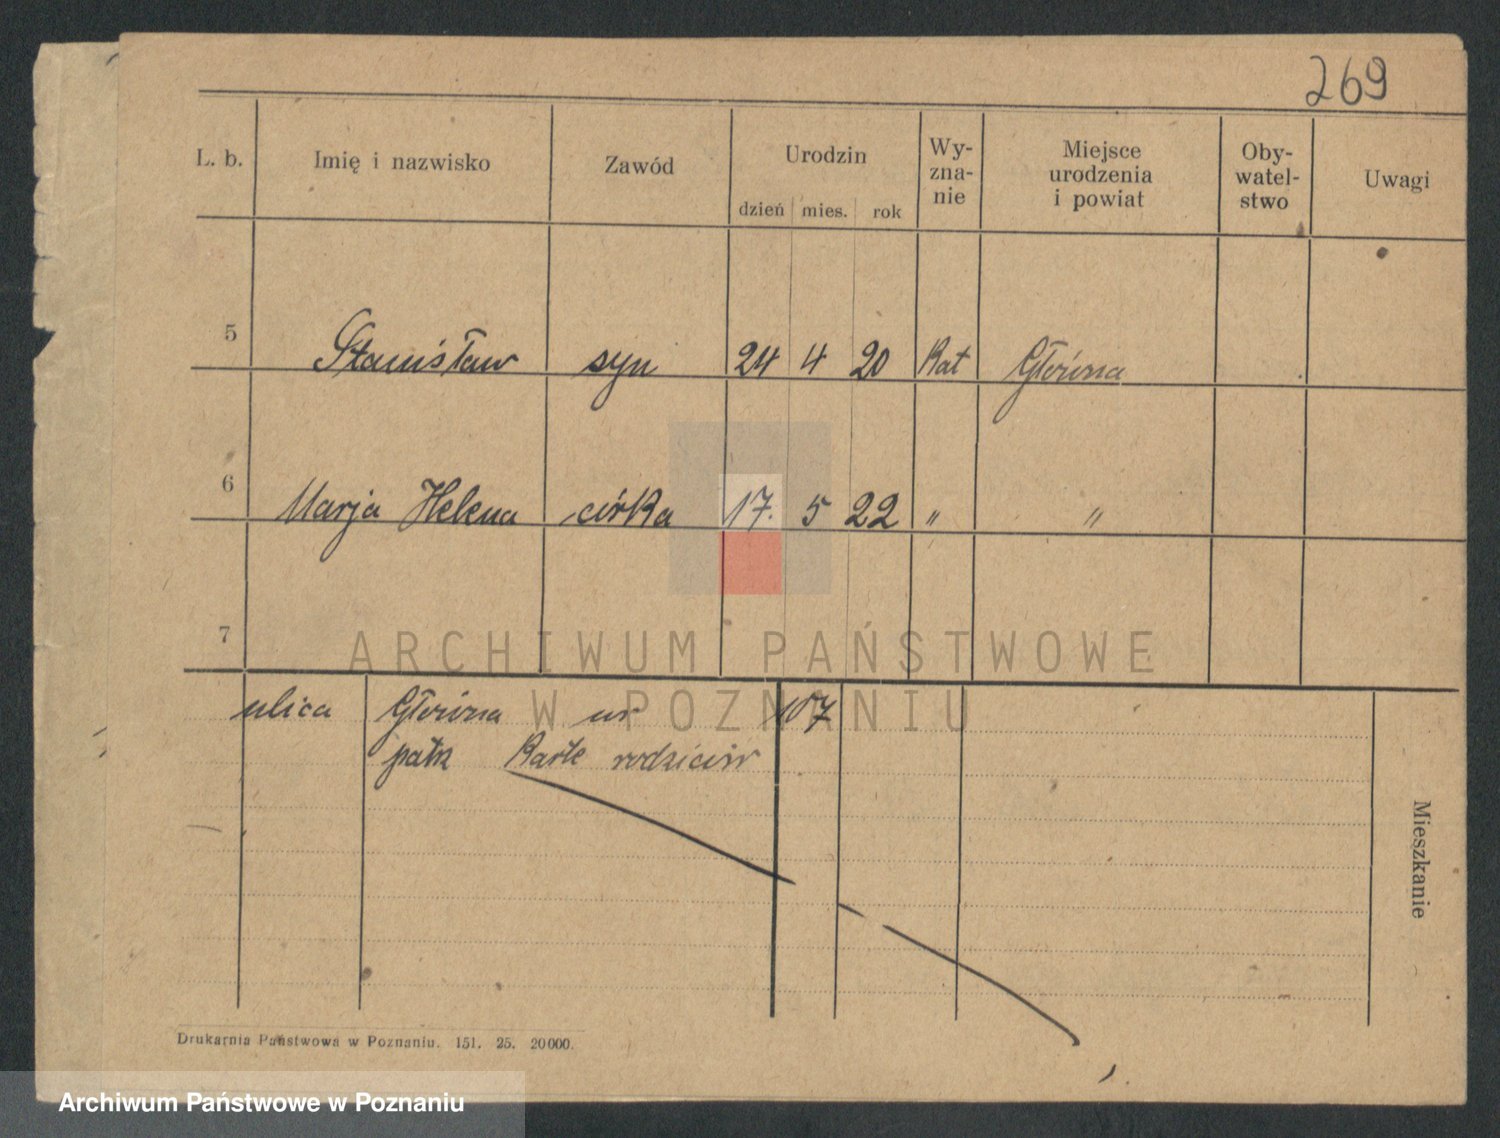 269
L. b. Imię i nazwisko Zawód Urodzin Wy-zna-nie Miejsce urodzenia i powiat Oby-watel-stwo Uwagi
dzień mies. rok
5 Stanisław syn 24 4 20 Kat Główna
6 Marja Helena córka 17. 5 22 " "
7
ARCHIWUM PAŃSTWOWE
W POZNANIU
ulica Główna nr 107
patrz Karte rodziców
Mieszkanie
Drukarnia Państwowa w Poznaniu. 151. 25. 20000.
Archiwum Państwowe w Poznaniu